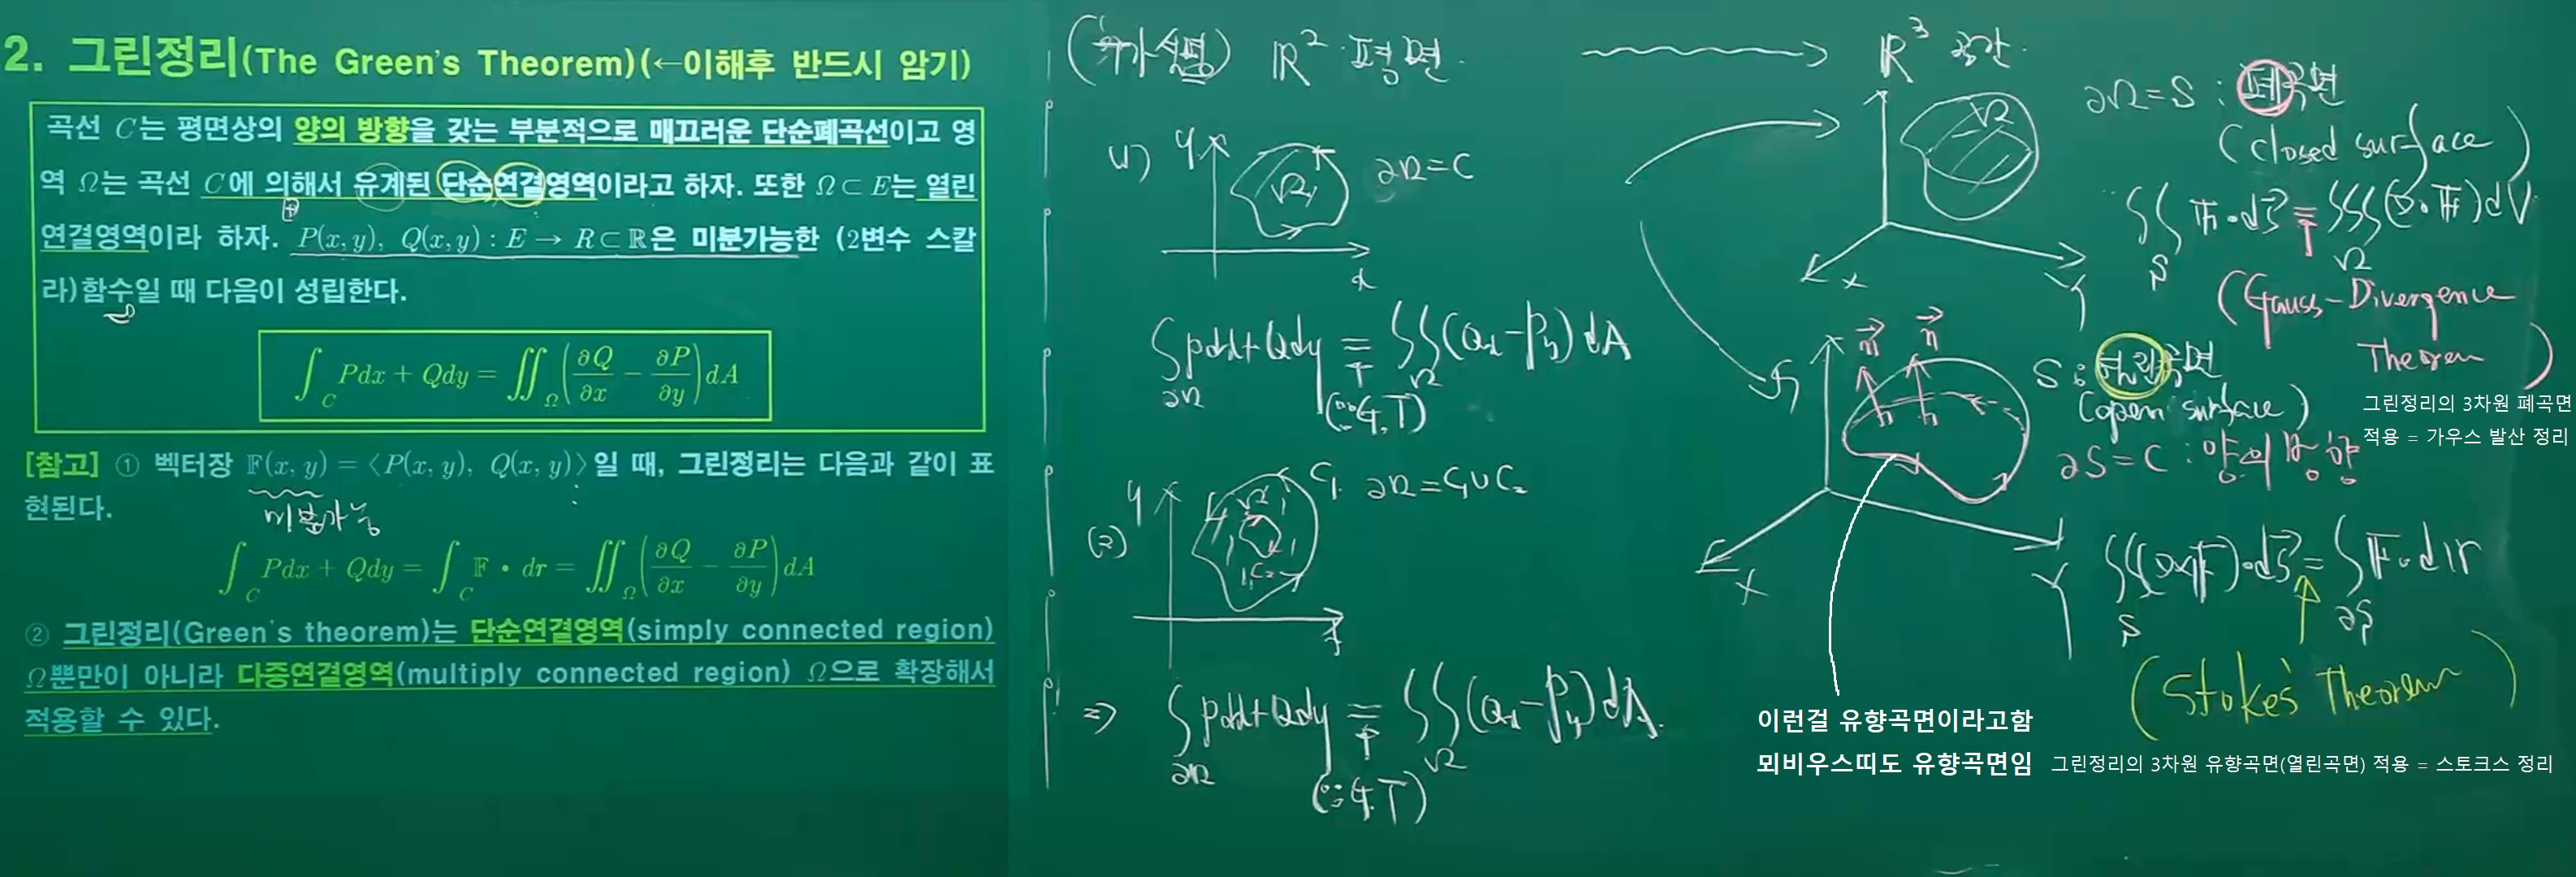 2. 그린정리(The Green's Theorem)(←이해후 반드시 암기)
곡선 C는 평면상의 양의 방향을 갖는 부분적으로 매끄러운 단순폐곡선이고 영
역 Ω는 곡선 C에 의해서 유계된 단순연결영역이라고 하자. 또한 Ω⊂E는 열린
연결영역이라 하자. P(x, y), Q(x, y) : E → R⊂ℝ은 미분가능한 (2변수 스칼
라)함수일 때 다음이 성립한다.
∫_C Pdx + Qdy = ∬_Ω (∂Q/∂x − ∂P/∂y) dA
[참고] ① 벡터장 𝔽(x, y) = ⟨P(x, y), Q(x, y)⟩일 때, 그린정리는 다음과 같이 표
현된다.
미분가능
∫_C Pdx + Qdy = ∫_C 𝔽 • dr = ∬_Ω (∂Q/∂x − ∂P/∂y) dA
② 그린정리(Green's theorem)는 단순연결영역(simply connected region)
Ω뿐만이 아니라 다중연결영역(multiply connected region) Ω으로 확장해서
적용할 수 있다.
(추가설명) ℝ² 평면
(1) y Ω ∂Ω=C
x
∫_∂Ω Pdx+Qdy = ∬_Ω (Qx−Py) dA
(∵G.T)
(2) y Ω C₁ ∂Ω=C₁∪C₂
C₂
x
⇒ ∫_∂Ω Pdx+Qdy = ∬_Ω (Qx−Py) dA.
(∵G.T)
ℝ³ 공간.
Ω
x
y
∂Ω=S : 폐곡면
(closed surface)
∬_S 𝔽•dS = ∭_Ω (∇•𝔽) dV
(Gauss-Divergence
Theorem)
그린정리의 3차원 폐곡면
적용 = 가우스 발산 정리
n n
S : 열린곡면
(open surface)
∂S=C : 양의 방향
x
y
∬_S (∇×𝔽)•dS = ∫_∂S 𝔽•dr
(Stoke's Theorem)
이런걸 유향곡면이라고함
뫼비우스띠도 유향곡면임
그린정리의 3차원 유향곡면(열린곡면) 적용 = 스토크스 정리